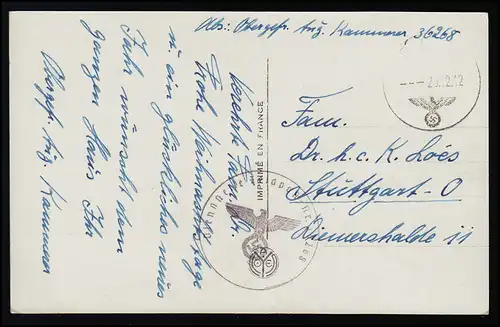 Abs.: Obergefr. Aug. Kammerer, 36268
23.12.42
Verehrte Fam.
Frohe Weihnachtstage
u. ein glückliches neues
Jahr wünscht dem
ganzen Haus Ihr
Obergefr. Aug. Kammerer
IMPRIMÉ EN FRANCE
Fam.
Dr. h. c. K. Loës
Stuttgart-O
Diemershalde 11